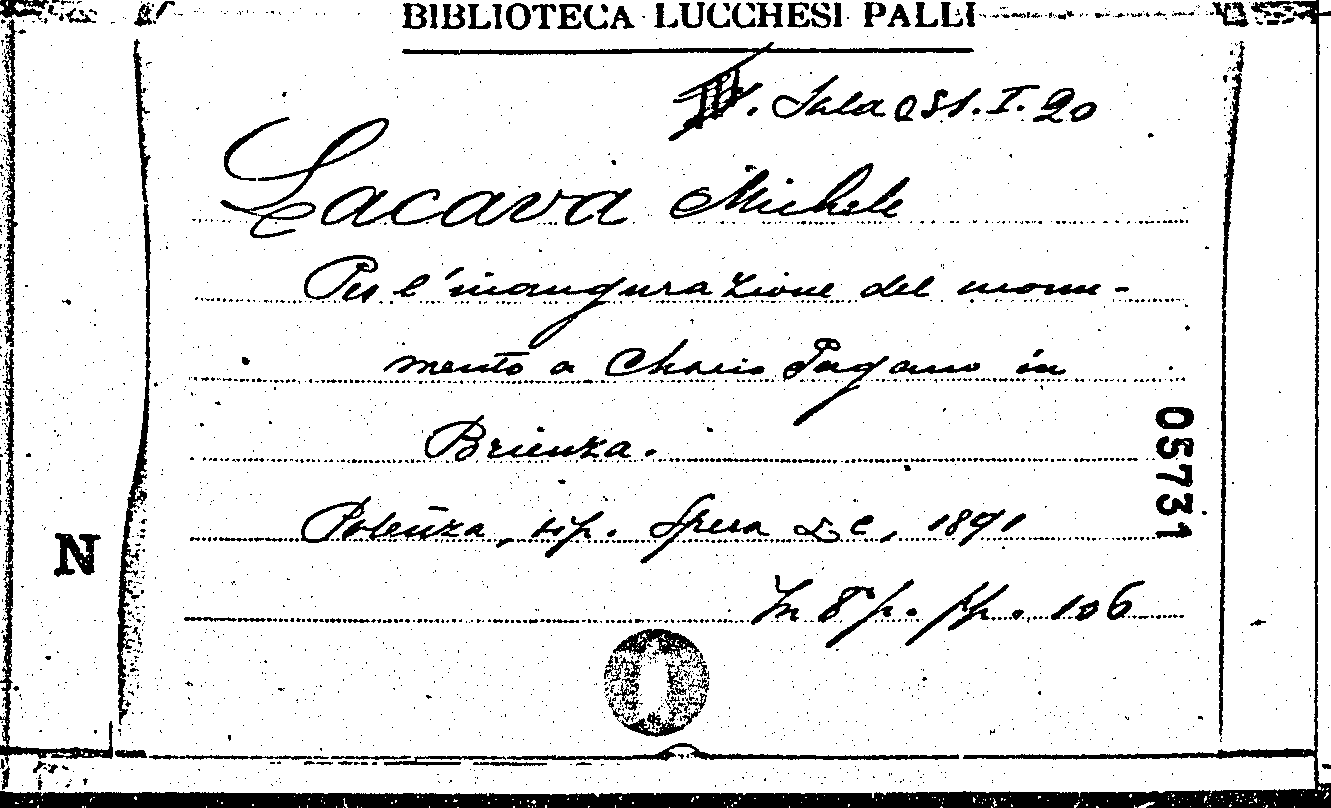 BIBLIOTECA LUCCHESI PALLI
Sala I. 20
Lacava Michele
Per l'inaugurazione del monu-
mento a Mario Pagano in
Brienza.
05731
N
Potenza, tip. Spera & C, 1891
In 8° p. pp. 106